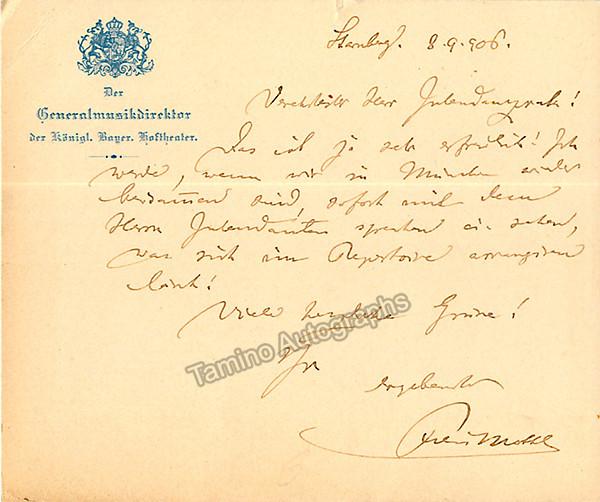 Der
Generalmusikdirektor
der Königl. Bayer. Hoftheater.
Starnberg. 8.9.906.
Verehrtester Herr Intendanzrath!
Das ist ja sehr erfreulich! Ich
werde, wenn wir in München wieder
beisammen sind, sofort mit dem
Herrn Intendanten sprechen u. sehen,
was sich im Repertoire arrangiren
lässt!
Viele herzliche Grüsse!
Ihr
ergebenster
Felix Mottl
Tamino Autographs